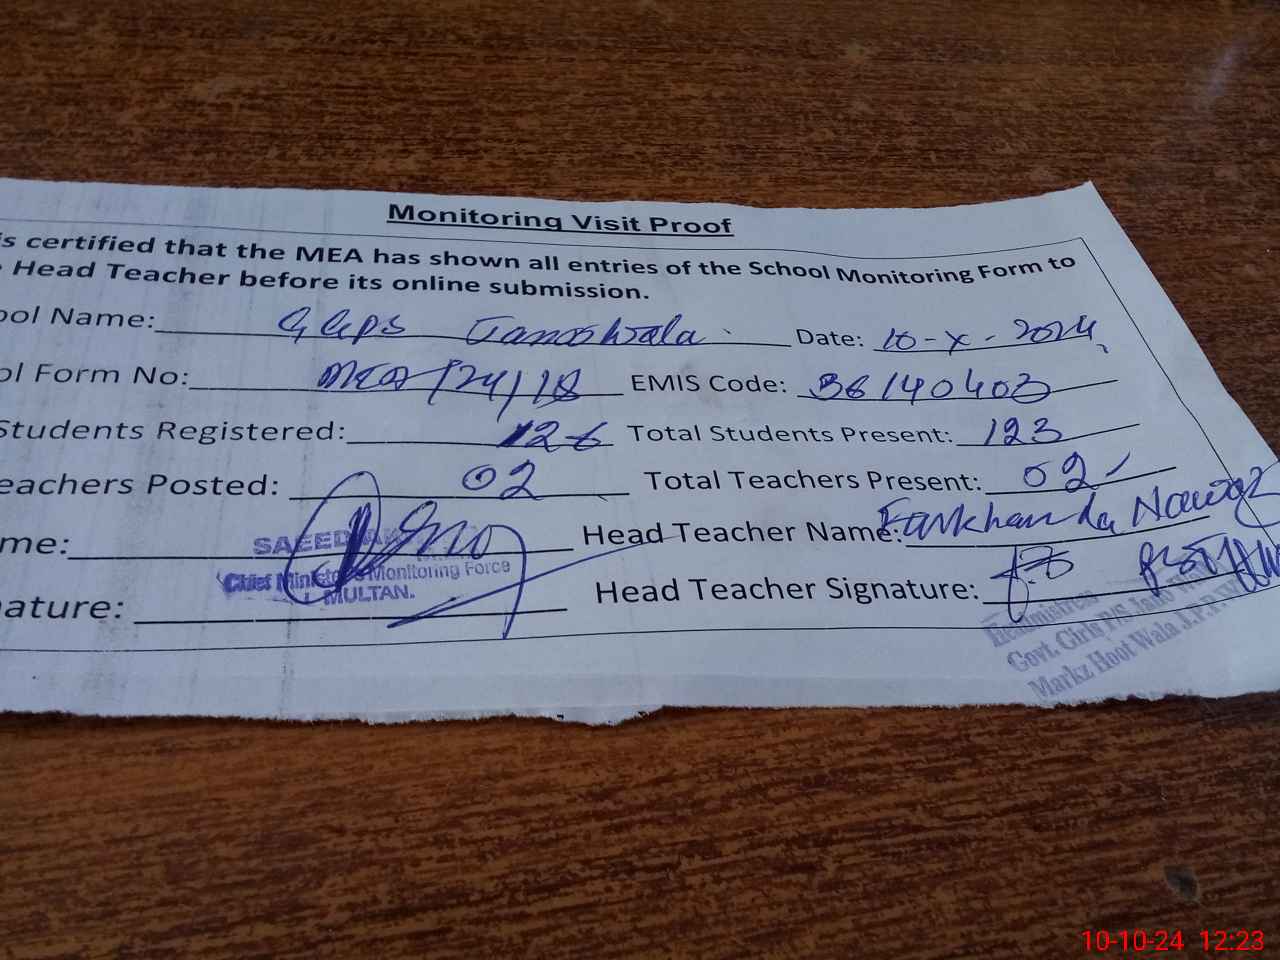 Monitoring Visit Proof
is certified that the MEA has shown all entries of the School Monitoring Form to
Head Teacher before its online submission.
ool Name: GGPS Janoowala Date: 10-X-2024
ol Form No: MEA/24/18 EMIS Code: 36140403
Students Registered: 126 Total Students Present: 123
eachers Posted: 02 Total Teachers Present: 02
me: SAEED Head Teacher Name: Farkhanda Nawaz
Chief Minister's Monitoring Force
MULTAN.
nature: Head Teacher Signature:
Headmistress
Govt. Girls P/S Jano
Markz Hoot Wala J.P.P.W
10-10-24 12:23